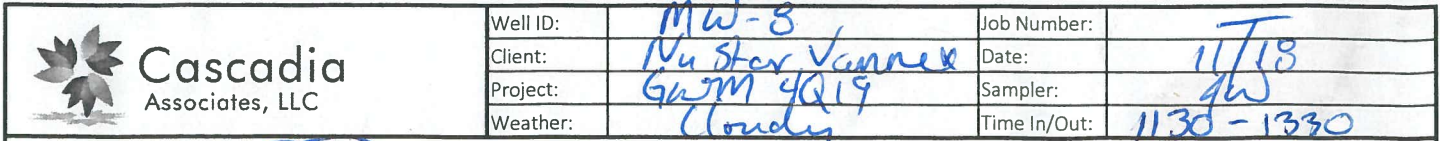 Cascadia
Associates, LLC
Well ID: MW-8 Job Number:
Client: NuStar Vannex Date: 11/18
Project: GWM 4Q19 Sampler:
Weather: Cloudy Time In/Out: 1130 - 1330